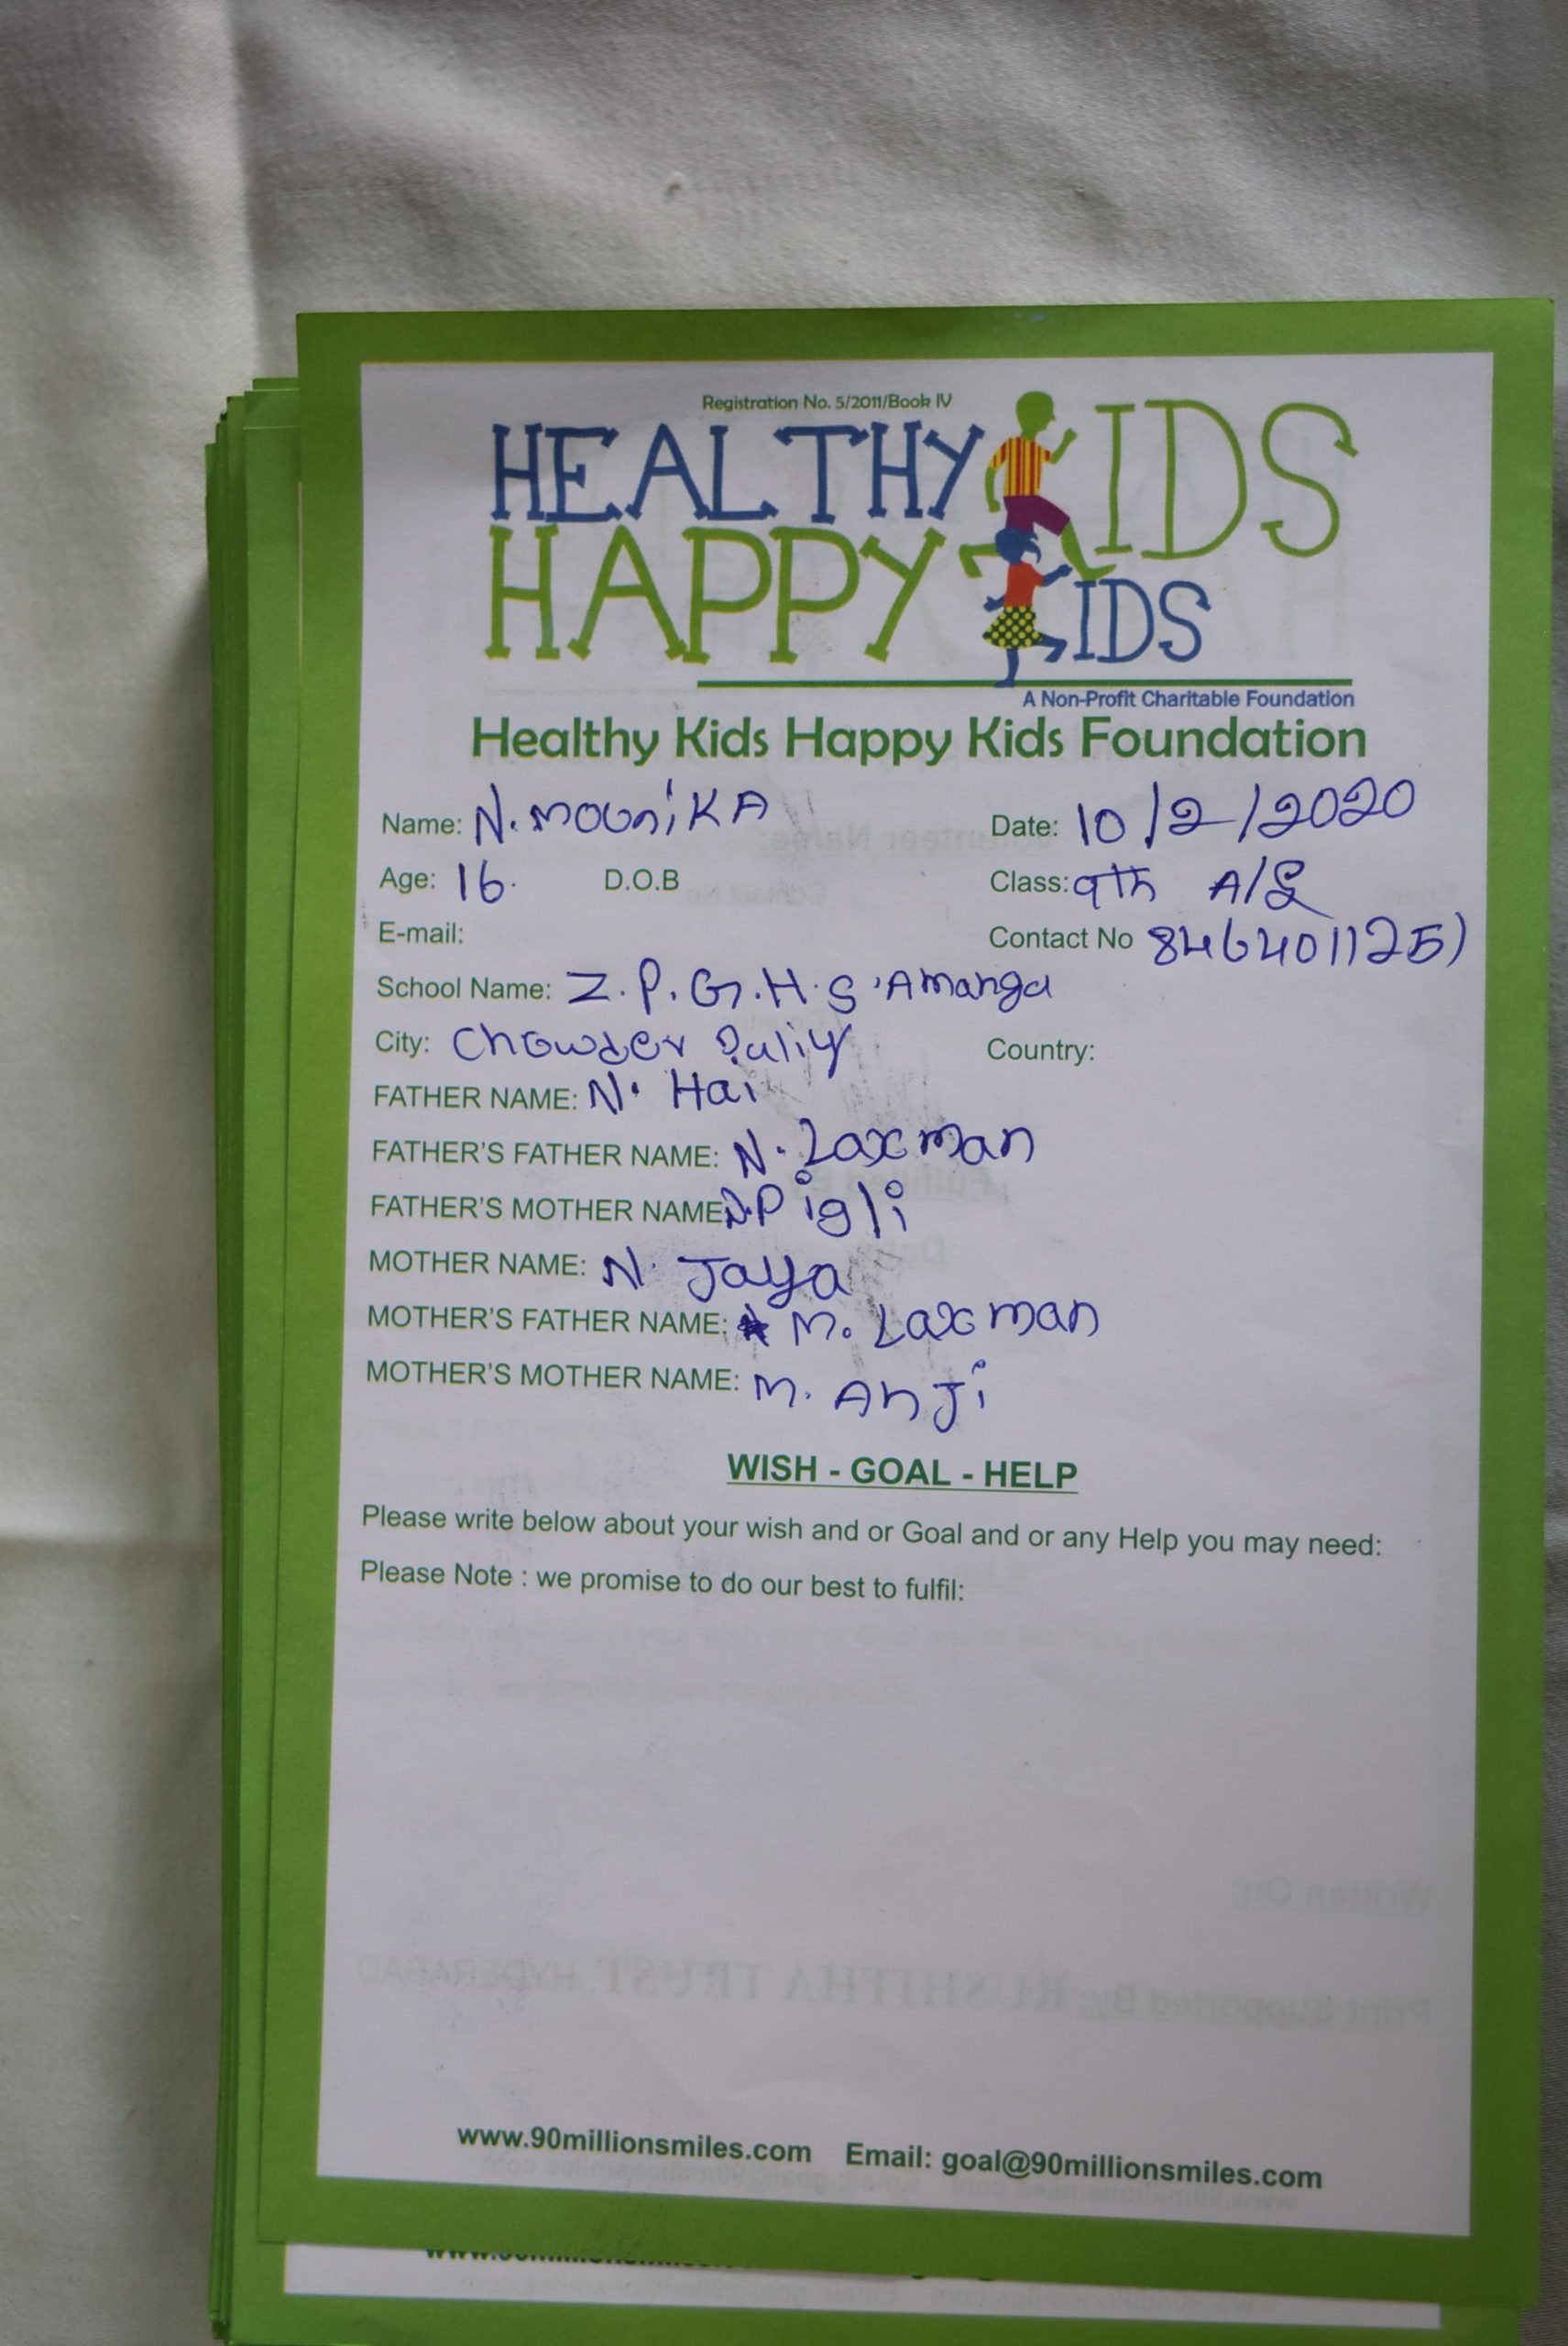 Registration No. 5/2011/Book IV
HEALTHY KIDS
HAPPY KIDS
A Non-Profit Charitable Foundation
Healthy Kids Happy Kids Foundation
Name: N. mounika Date: 10/2/2020
Age: 16. D.O.B Class: 9th A/S
E-mail: Contact No 8464011251
School Name: Z.P.G.H.S Amangal
City: Chowder Pally Country:
FATHER NAME: N. Hai
FATHER'S FATHER NAME: N. Laxman
FATHER'S MOTHER NAME: N.Pigli
MOTHER NAME: N. Jaya
MOTHER'S FATHER NAME: M. Laxman
MOTHER'S MOTHER NAME: M. Anji
WISH - GOAL - HELP
Please write below about your wish and or Goal and or any Help you may need:
Please Note : we promise to do our best to fulfil:
www.90millionsmiles.com Email: goal@90millionsmiles.com